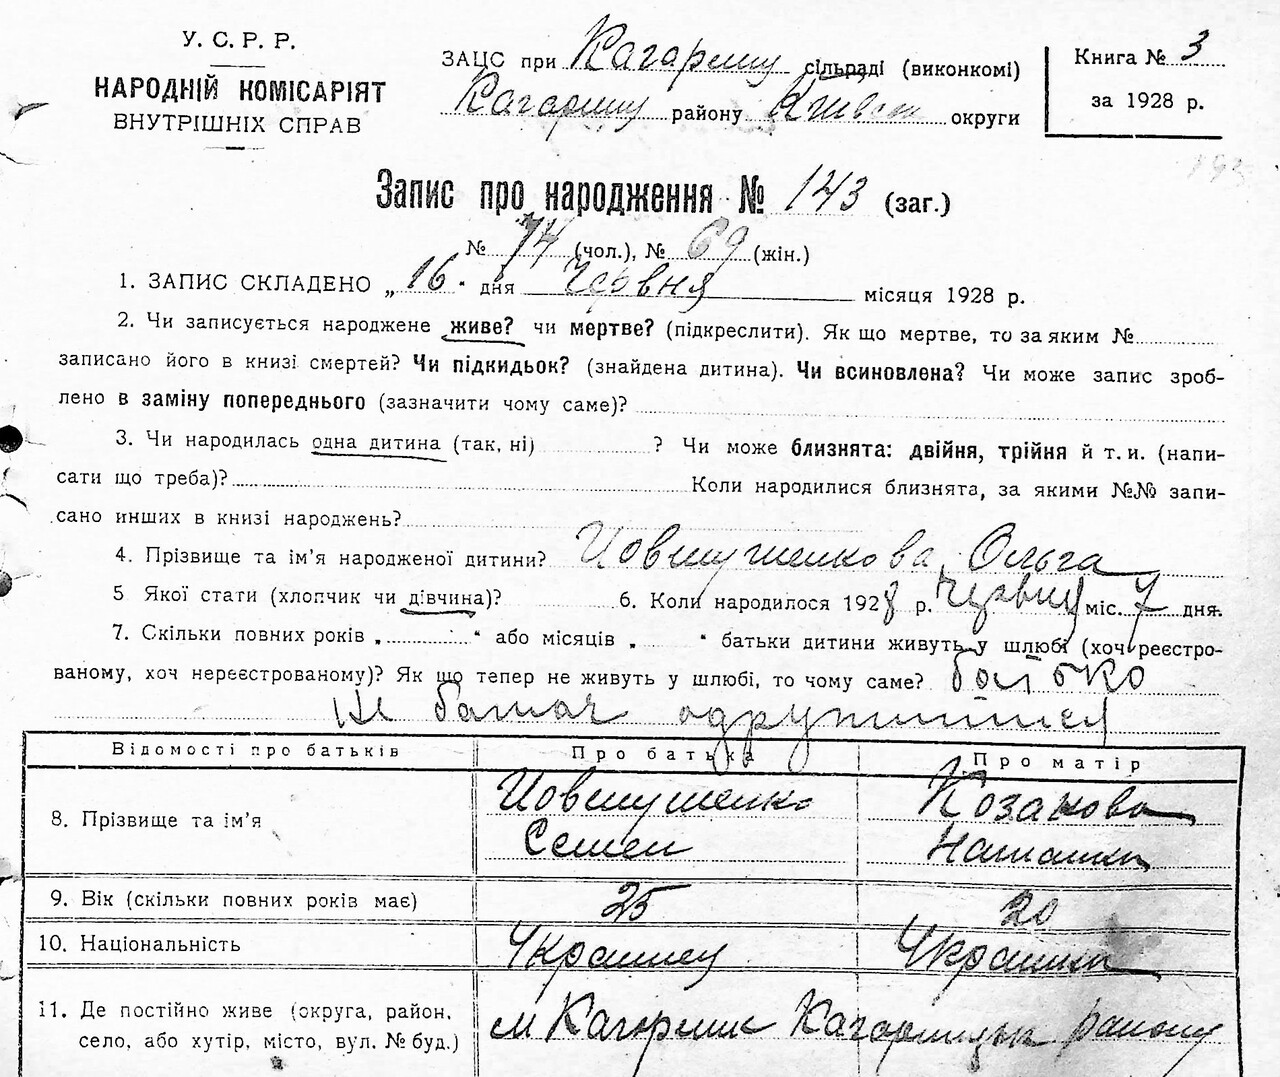 У. С. Р. Р.
НАРОДНІЙ КОМІСАРІЯТ
ВНУТРІШНІХ СПРАВ
ЗАЦС при Кагарлиц сільраді (виконкомі)
Кагарлиц району Київськ округи
Книга № 3
за 1928 р.
Запис про народження № 143 (заг.)
№ 74 (чол.), № 69 (жін.)
1. ЗАПИС СКЛАДЕНО „16“ дня Червня місяця 1928 р.
2. Чи записується народжене живе? чи мертве? (підкреслити). Як що мертве, то за яким №
записано його в книзі смертей? Чи підкидьок? (знайдена дитина). Чи всиновлена? Чи може запис зроб-
лено в заміну попереднього (зазначити чому саме)?
3. Чи народилась одна дитина (так, ні) ? Чи може близнята: двійня, трійня й т. и. (напи-
сати що треба)? Коли народилися близнята, за якими №№ запи-
сано инших в книзі народжень?
4. Прізвище та ім’я народженої дитини? Ольга
5 Якої стати (хлопчик чи дівчина)? 6. Коли народилося 1928 р. Червня міс. 7 дня.
7. Скільки повних років „ “ або місяців „ “ батьки дитини живуть у шлюбі (хоч реєстро-
ваному, хоч нереєстрованому)? Як що тепер не живуть у шлюбі, то чому саме? батько
не бажає одружитися
Відомості про батьків Про батька Про матір
8. Прізвище та ім’я Козакова
Семен Наталка
9. Вік (скільки повних років має) 25 20
10. Національність Українец Українка
11. Де постійно живе (округа, район,
село, або хутір, місто, вул. № буд.) м Кагарлик Кагарлицьк району